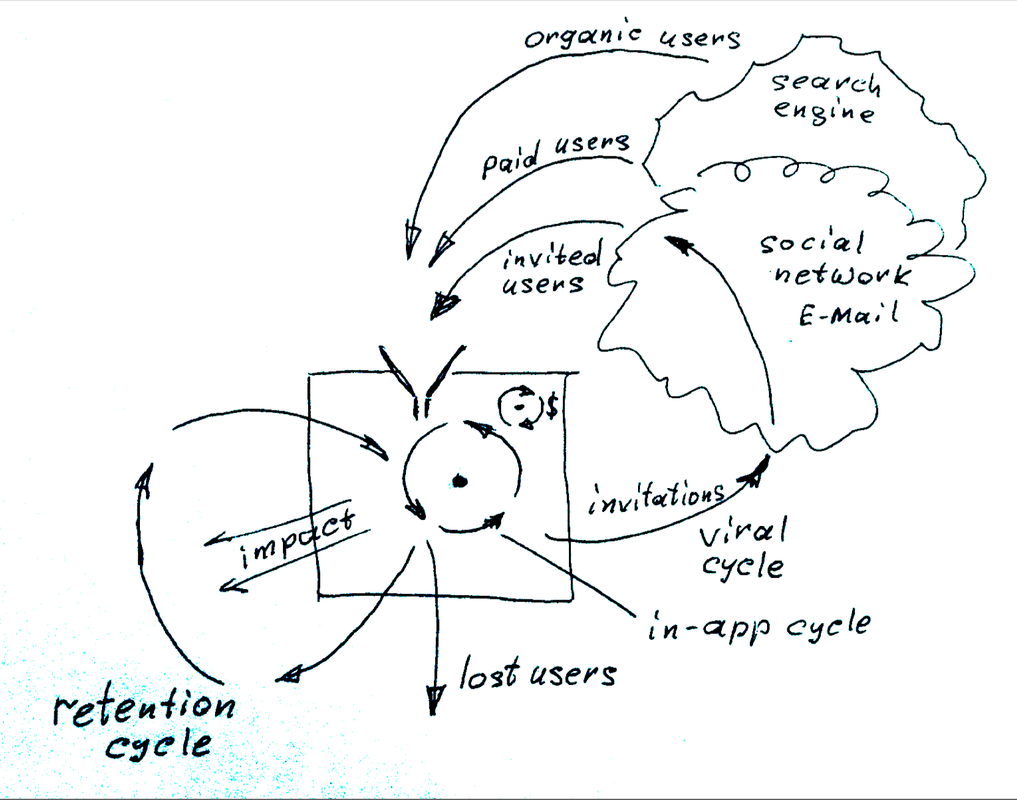 organic users
search
engine
paid users
social
network
E-Mail
invited
users
$
invitations
viral
cycle
impact
in-app cycle
lost users
retention
cycle